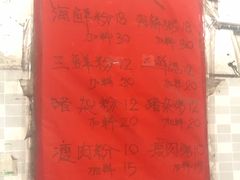 海鲜粉18 海鲜粥18
加料30 加料30
三鲜粉12 三鲜粥12
加料20 加料20
猪杂粉12 猪杂粥12
加料20 加料20
瘦肉粉10 瘦肉粥10
加料15 加料15